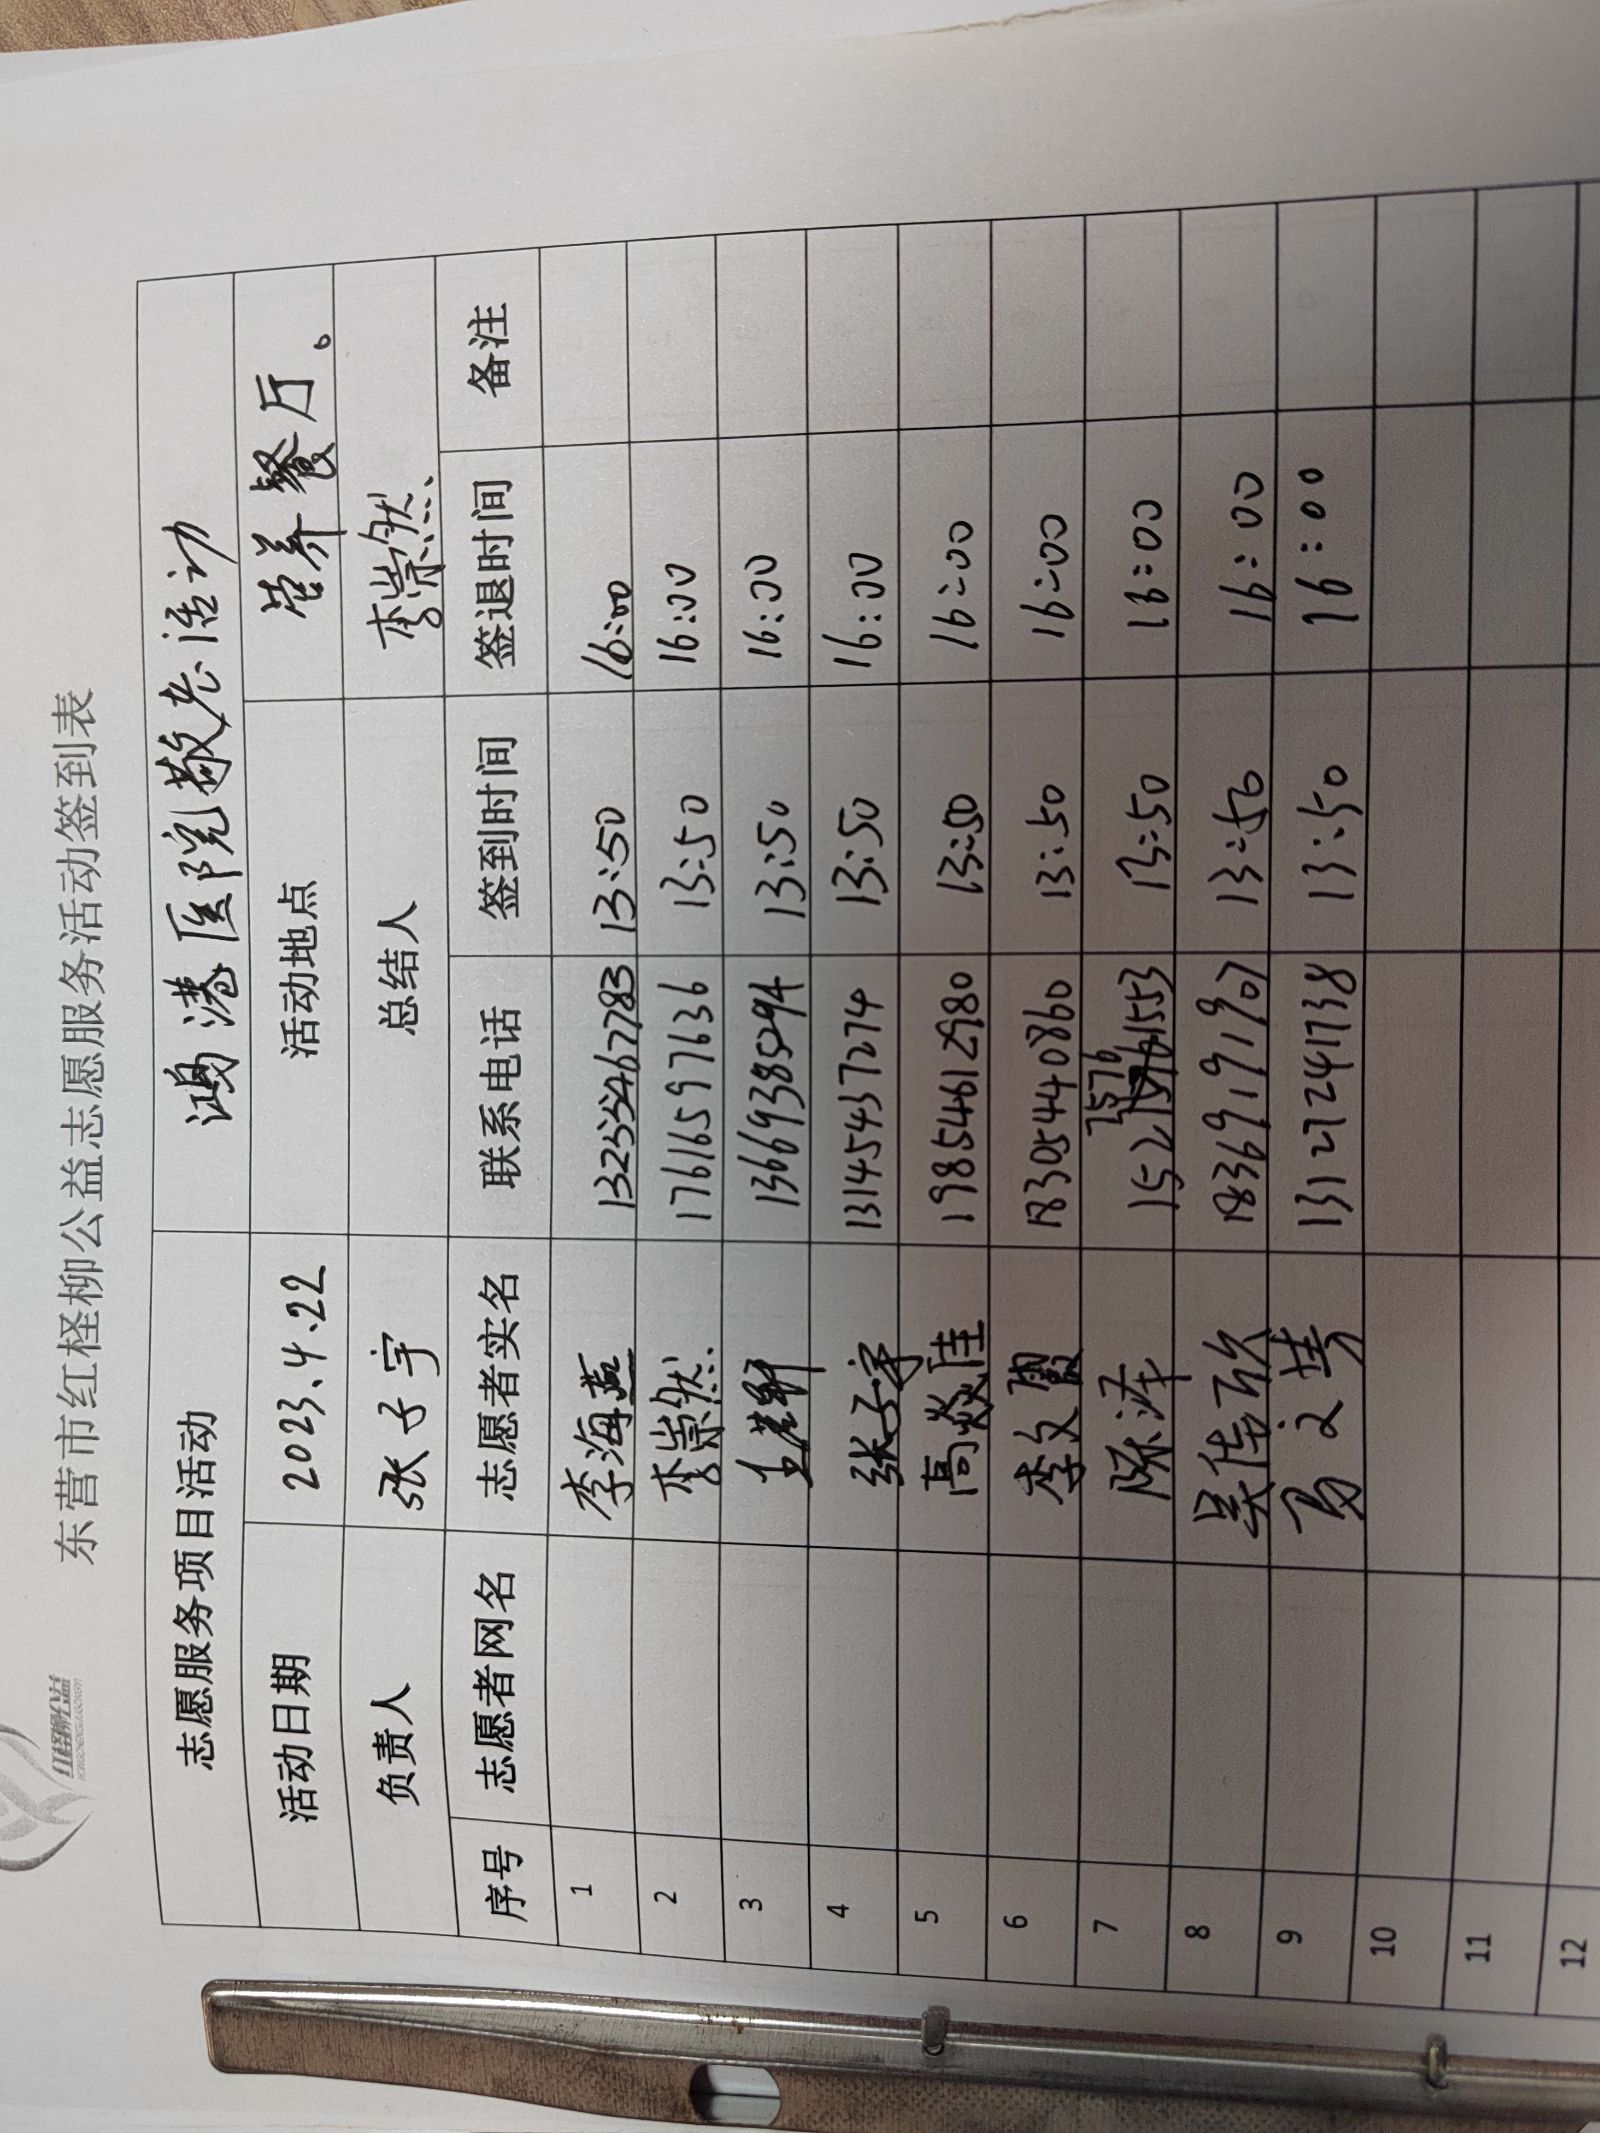 红柽柳公益
东营市红柽柳公益志愿服务活动签到表
志愿服务项目活动 鸿港医院敬老活动
活动日期 2023.4.22 活动地点 营养餐厅。
负责人 张子宇 总结人 李崇然
序号 志愿者网名 志愿者实名 联系电话 签到时间 签退时间 备注
1 李海燕 13235467783 13:50 16:00
2 李崇然 17616597636 13:50 16:00
3 13669385294 13:50 16:00
4 张子宇 13145437274 13:50 16:00
5 高焱佳 19854612980 13:50 16:00
6 李文 18305440860 13:50 16:00
7 陈萍 13:50 16:00
8 吴佳欣 18369191907 13:50 16:00
9 13127241738 13:50 16:00
10
11
12